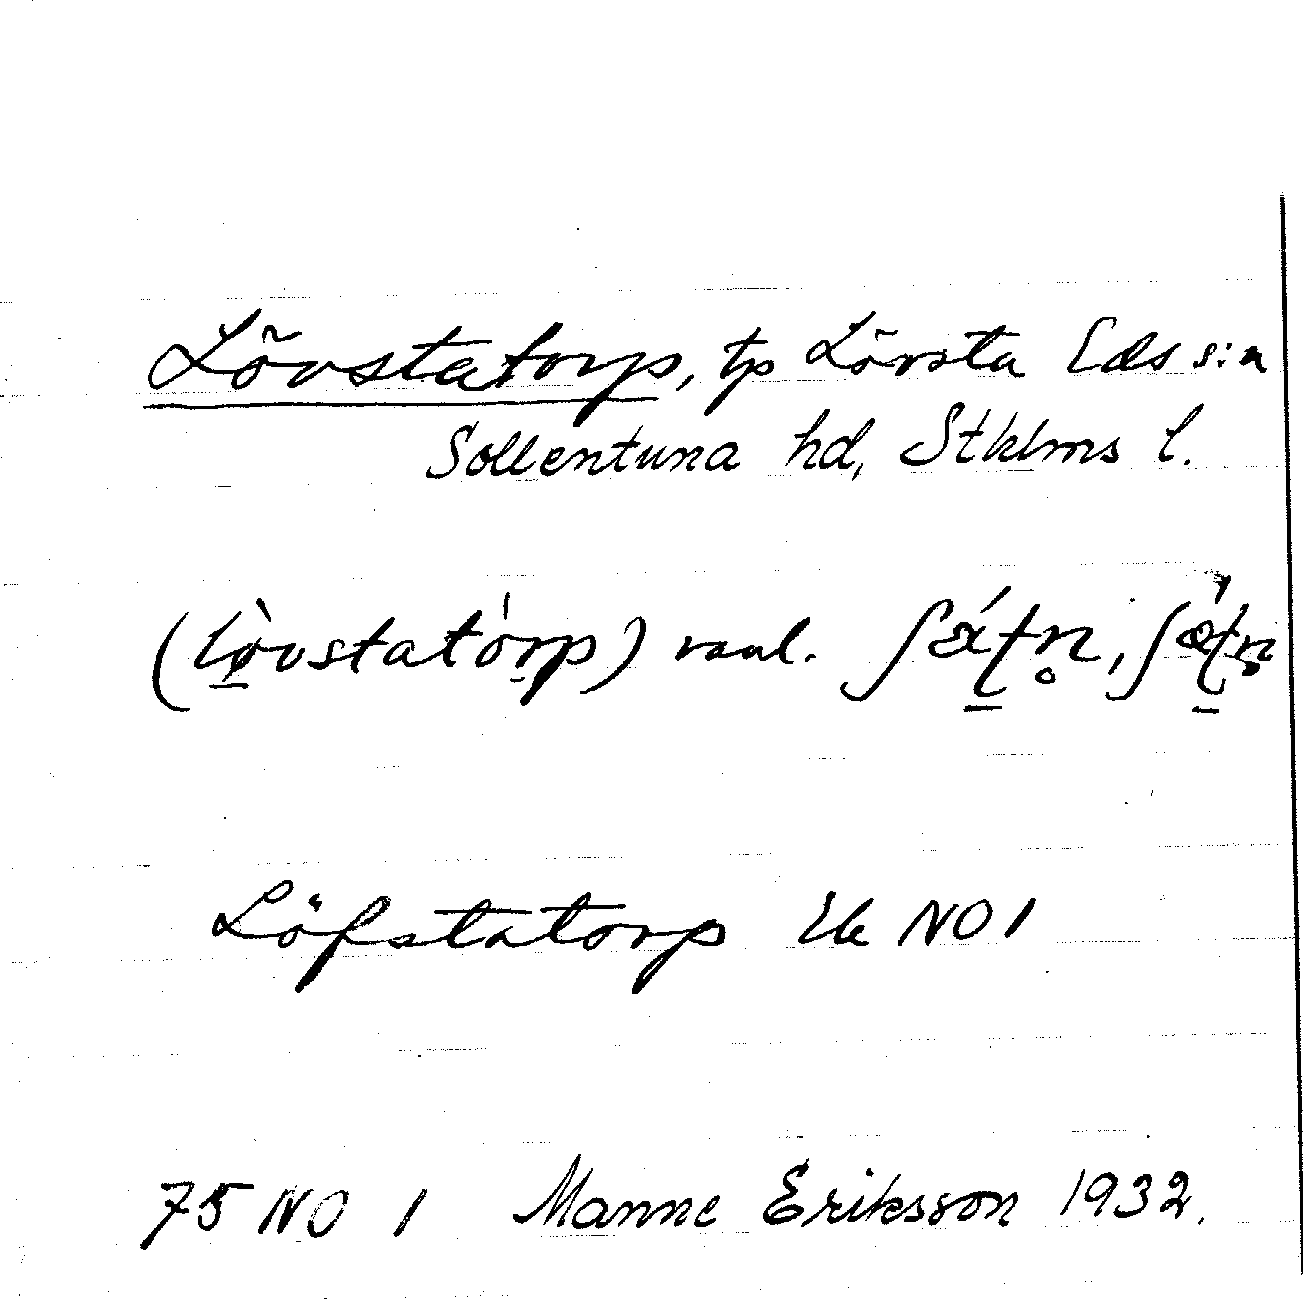 Lövstatorp, tp Lövsta Eds s:n
Sollentuna hd, Stklms l.
(lø̀vstatórp) vanl.
Löfstatorp Ek NO 1
75 NO 1 Manne Eriksson 1932.